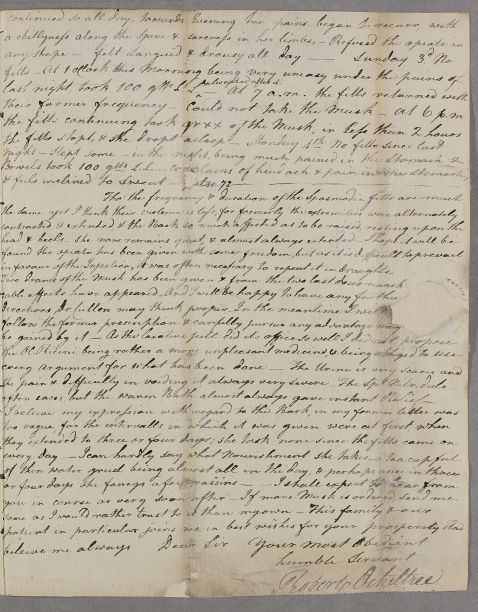 continued so all day, towards Evening her pains began to recur with
a chillyness along the Spine & soreness in her limbs, - Refused the opeate in
any shape - felt Languid & drousy all day - Sunday 3d No
fitts - At 1 oClock this Morning being very uneasy under the pains of
last night took 100 gtts L.L. At 7 a.m. the fitts returned with
their former frequency - Could not take the Musk - at 6 p.m
the fitts continuing took gr xx of the Musk, in less than 2 hours
the fitts stopt, & she dropt asleep - Monday 4th No fitts since last
night - Slept some - in the night, being much pained in the Stomach &
Bowels took 100 gtts L.L. - complains of headach & pain in the Stomach,
& feels inclined to Sweat - pulse 72
Tho' the frequency & duration of the Spasmodic fitts are much
the same yet I think their violence is less, for formerly the extremities were alternately
contracted & extended & the back so much affected as to be raised, resting upon the
head & heels. She now remains quiet & almost always extended - I hope it will be
found the opeate has been given with some freedom, but as it is difficult to prevail
in favour of the Injection, it was often necessary to repeat it in draughts.
Two Drams of the Musk has been given & from the two last doses remark-
able effects have appeared. And I will be happy to have any further
directions Dr Cullen may think proper. In the meantime I will
follow the former prescription & carefully pursue any advantage may
be gained by it - As the laxative pill did its office so well I did not propose
the Ol. Ricini being rather a more unpleasant medicine & being obliged to use
every argument for what has been done - The Urine is very scarce and
the pain & difficulty in voiding it always very severe. The Spt. Nitr. dulc.
often ease, but the warm Bath almost always gave instant Relief -
I believe my expression with regard to the Bark, in my former letter was
too vague for the intervalls in which it was given were at first when
they extended to three or four days; she took none since the fitts came on
every day - I can hardly say what Nourishment she takes a tea cupful
of thin water gruel being almost all in the day, & perhaps once in three
or four days she fancys a few raisins - I shall expect to hear from
you in course or very soon after - If more Musk is ordered send me
some as I would rather trust to it than my own - This family & our
patient in particular joins me in best wishes for your prosperity And
believe me always Dear Sir Your most Obedient
humble Servant
Robert Ochiltree